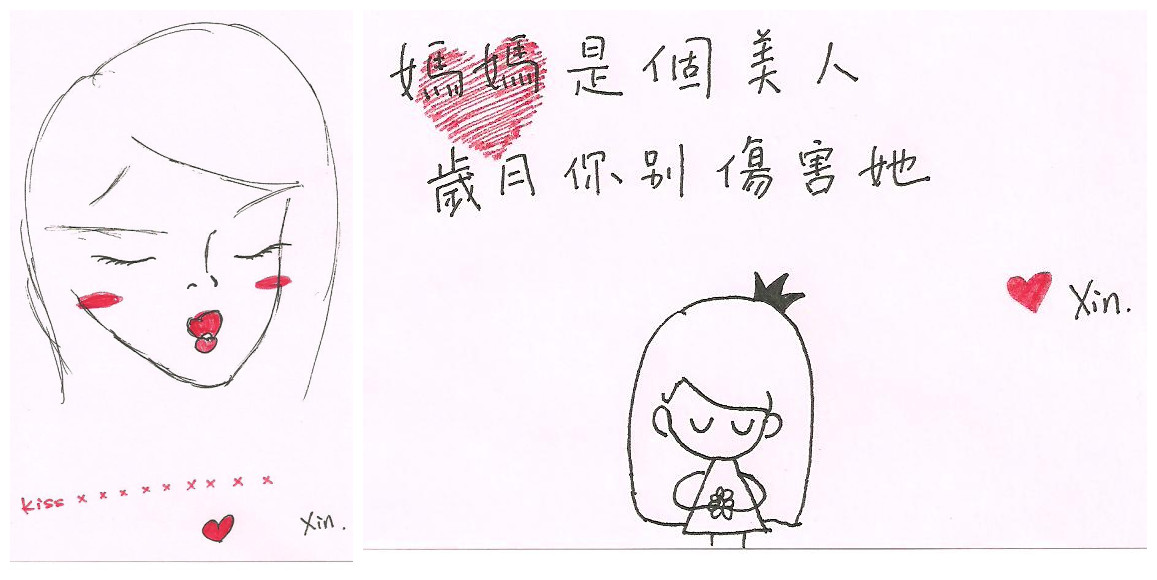 kiss x x x x x x x x x x
Xin.
媽媽是個美人
歲月你別傷害她
Xin.